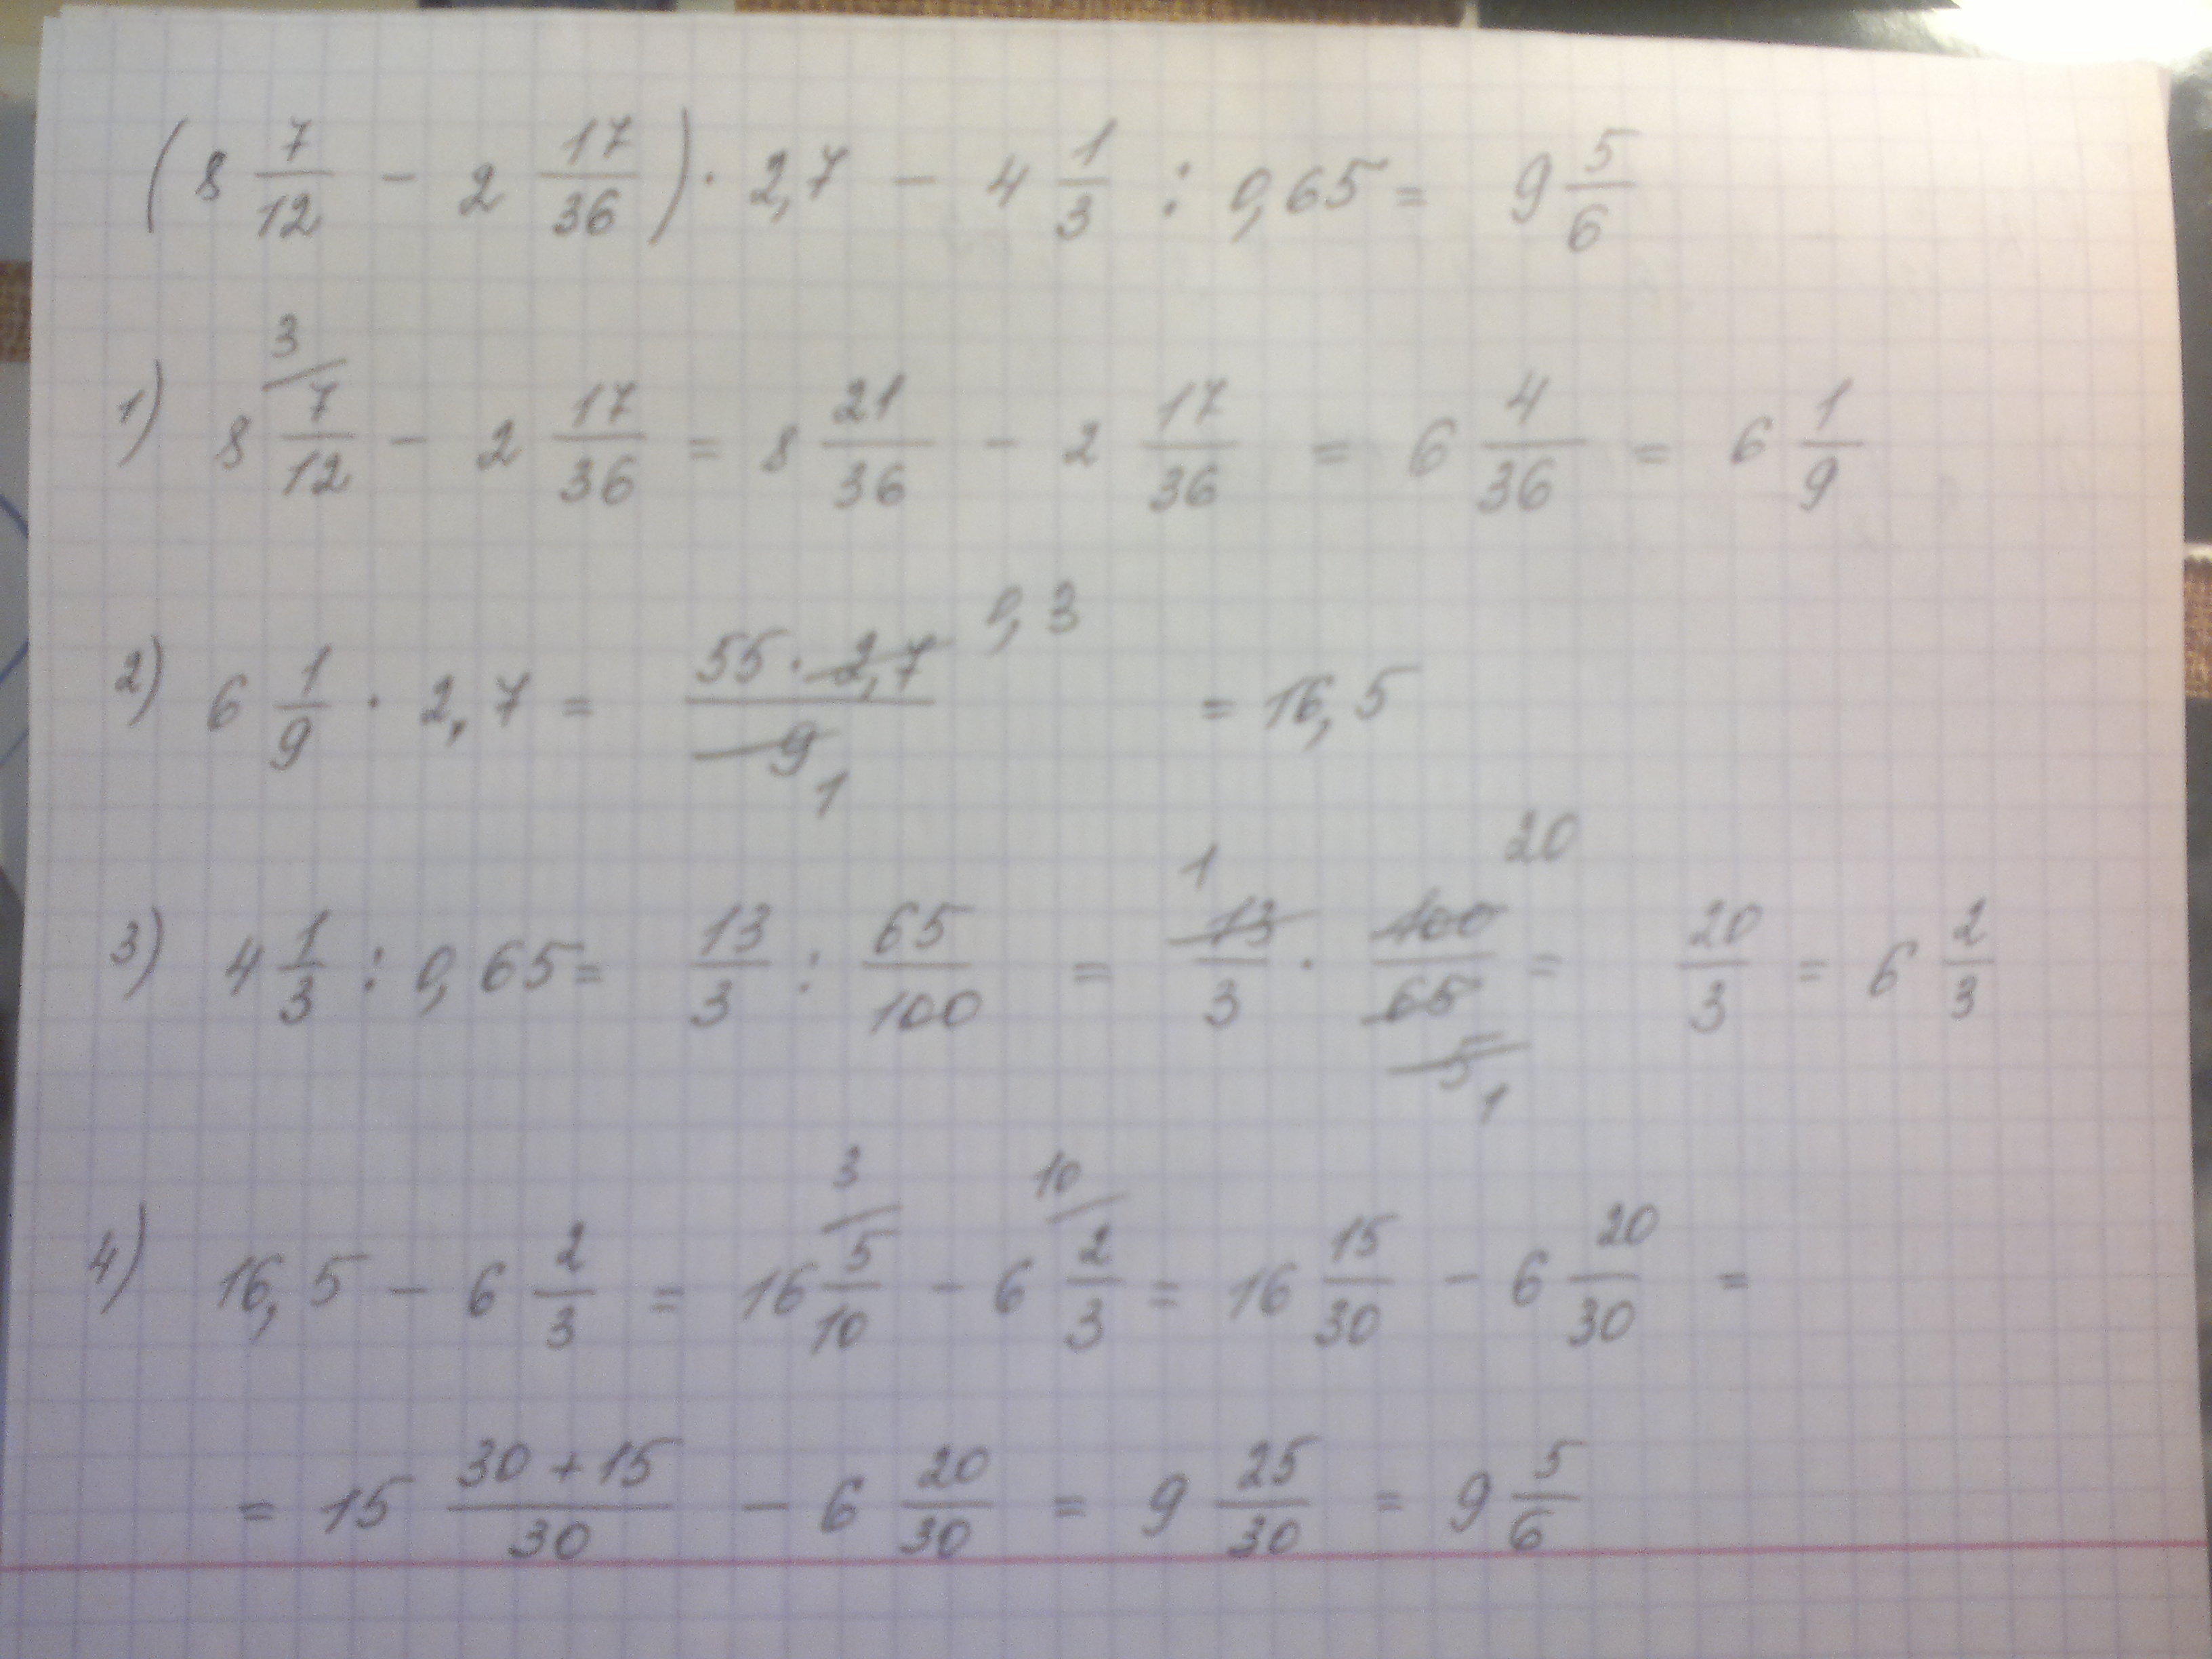 (8 7/12 - 2 17/36) · 2,7 - 4 1/3 : 0,65 = 9 5/6
1) 8 3/ 7/12 - 2 17/36 = 8 21/36 - 2 17/36 = 6 4/36 = 6 1/9
2) 6 1/9 · 2,7 = 55 · 2,7 0,3 / 9 1 = 16,5
3) 4 1/3 : 0,65 = 13/3 : 65/100 = 1 13/3 · 100 20 / 65 5 1 = 20/3 = 6 2/3
4) 16,5 - 6 2/3 = 16 3/ 5/10 - 6 10/ 2/3 = 16 15/30 - 6 20/30 =
= 15 30+15/30 - 6 20/30 = 9 25/30 = 9 5/6